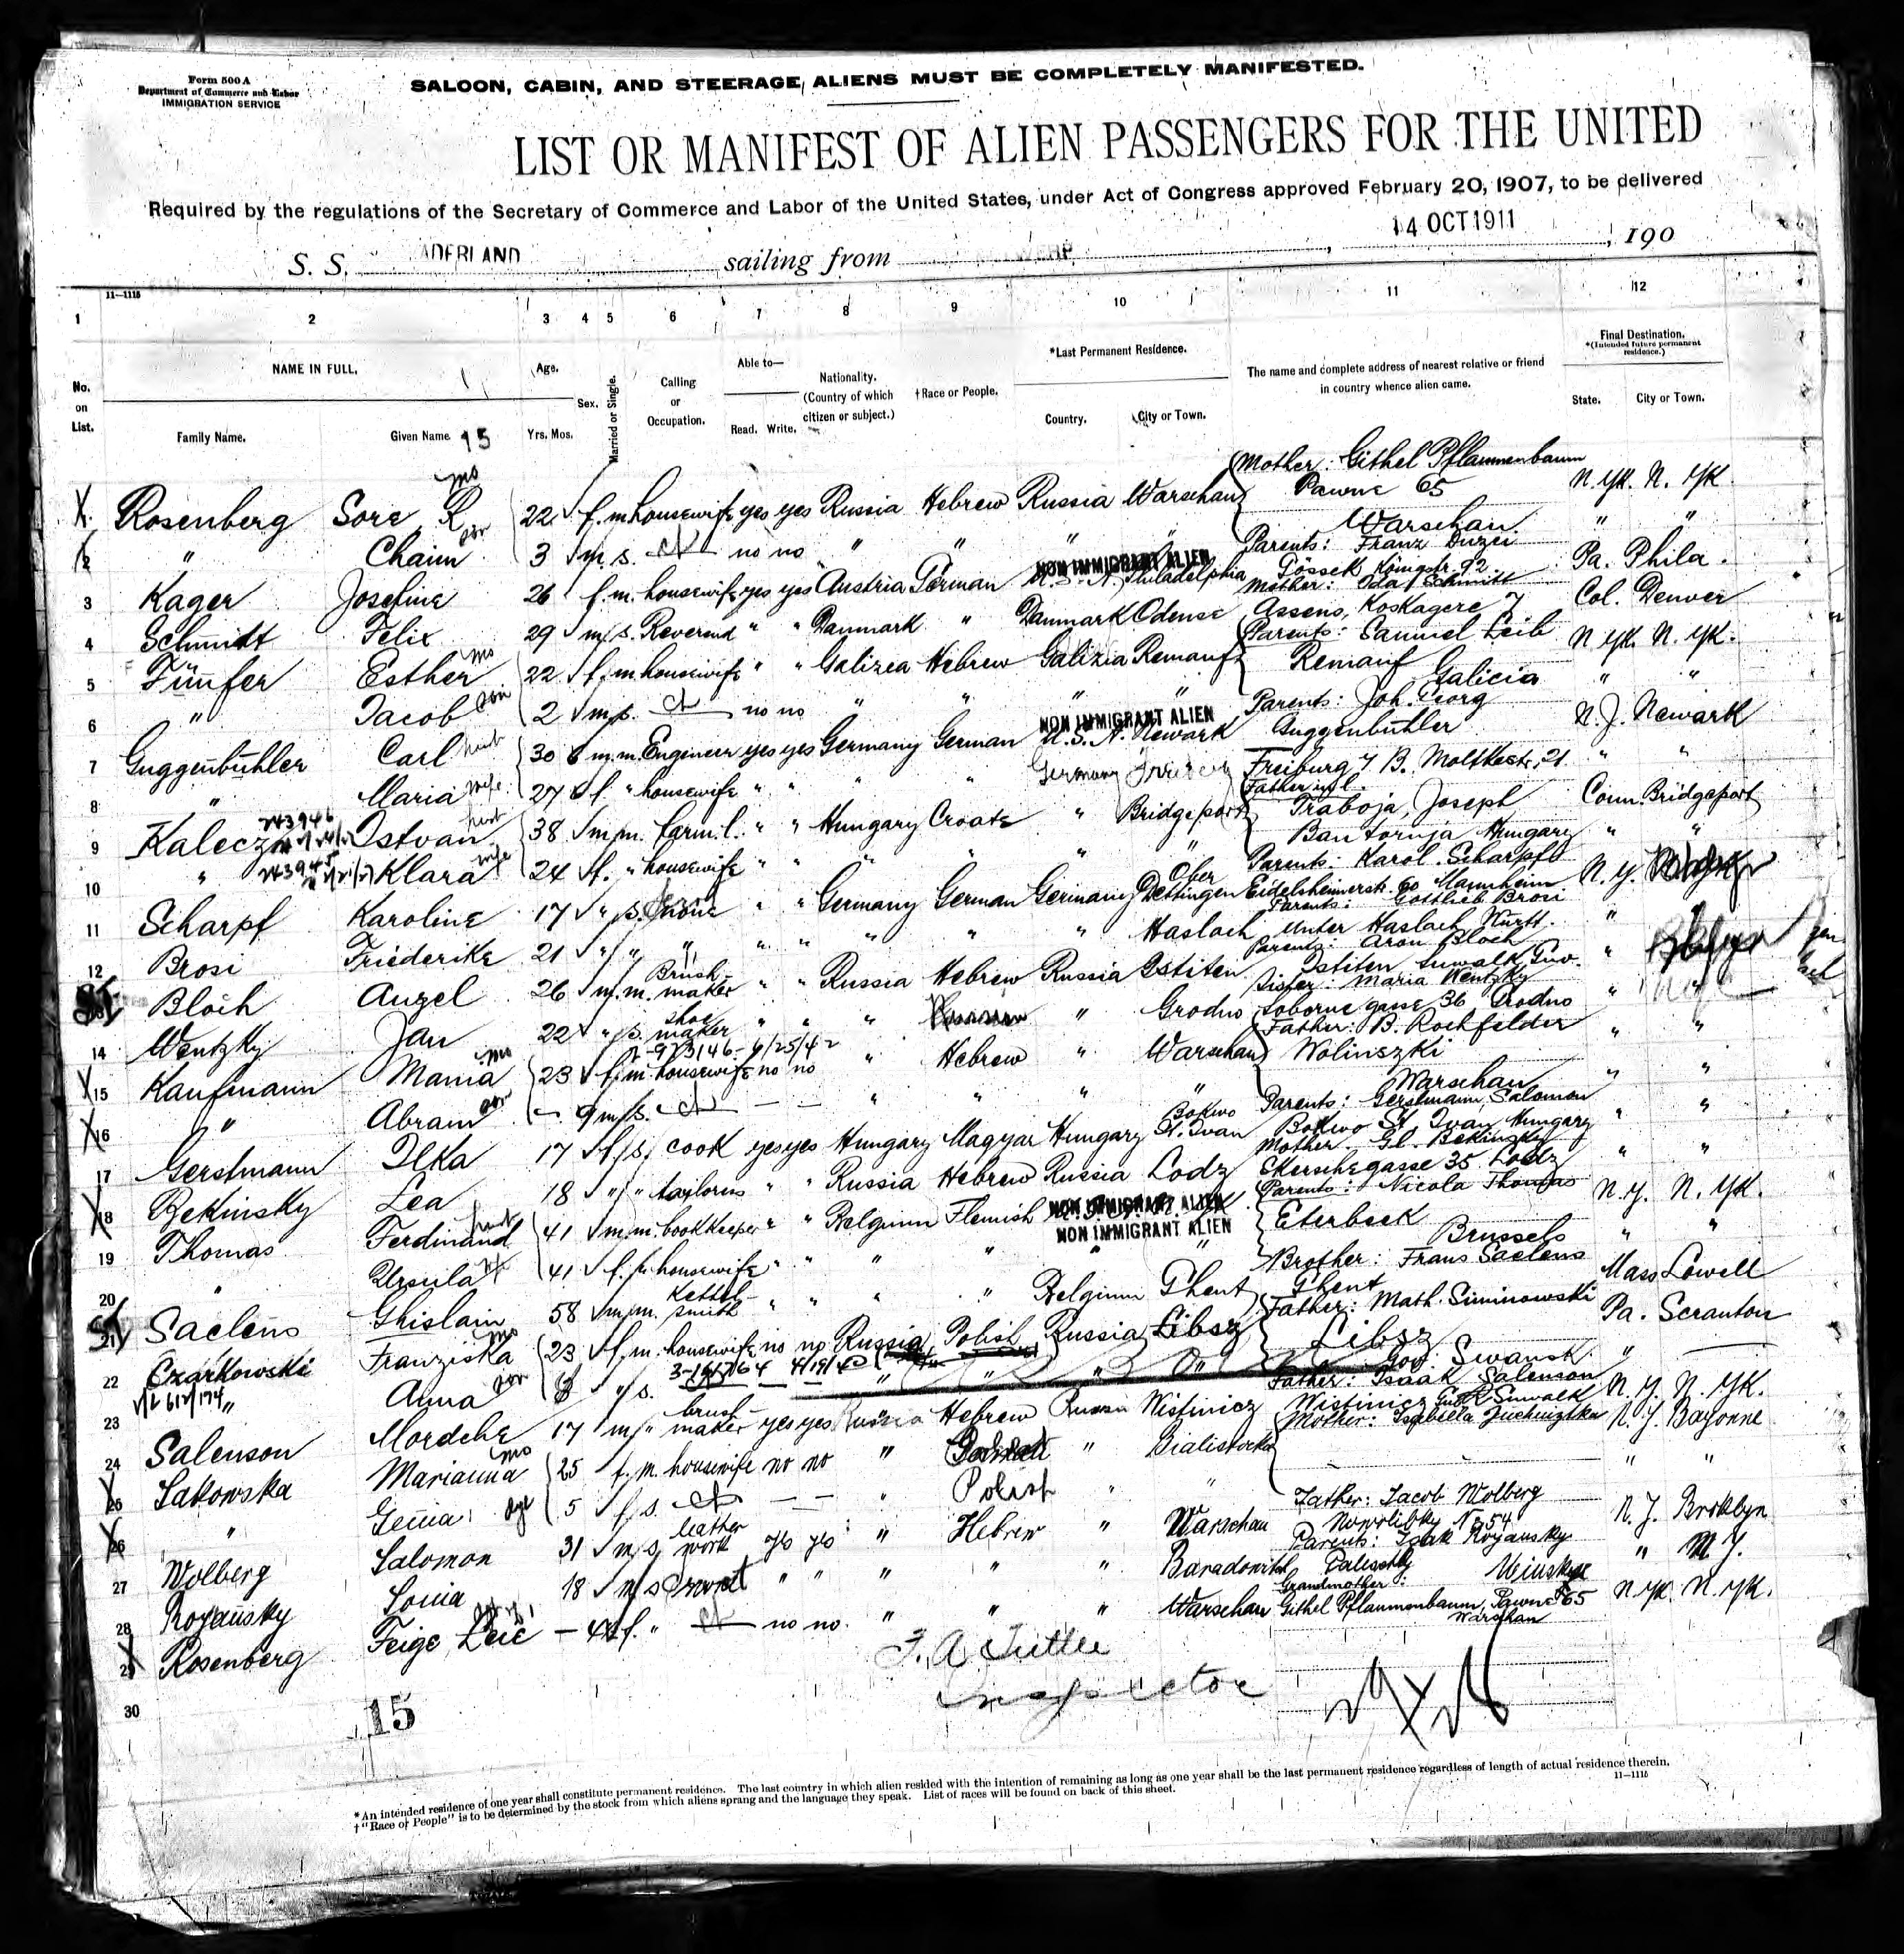 Form 500 A
Department of Commerce and Labor
IMMIGRATION SERVICE
SALOON, CABIN, AND STEERAGE ALIENS MUST BE COMPLETELY MANIFESTED.
LIST OR MANIFEST OF ALIEN PASSENGERS FOR THE UNITED
Required by the regulations of the Secretary of Commerce and Labor of the United States, under Act of Congress approved February 20, 1907, to be delivered
S. S. ADERLAND sailing from WERP, 14 OCT 1911, 190
11—1115
1 2 3 4 5 6 7 8 9 10 11 12
No. on List.
NAME IN FULL.
Family Name. Given Name 15
Age.
Yrs. Mos.
Sex.
Married or Single.
Calling or Occupation.
Able to—
Read. Write.
Nationality. (Country of which citizen or subject.)
†Race or People.
*Last Permanent Residence.
Country. City or Town.
The name and complete address of nearest relative or friend in country whence alien came.
Final Destination.
*(Intended future permanent residence.)
State. City or Town.
Rosenberg Sore R. mo 22 f. m. housewife yes yes Russia Hebrew Russia Warschau Mother: Githel Pflaumenbaum Pawne 65 Warschau N. Yk. N. Yk
2 " Chaim son 3 m. s. ch no no " " " " " "
3 Kager Josefine 26 f. m. housewife yes yes Austria German U.S.A. Philadelphia NON IMMIGRANT ALIEN Parents: Franz Duzei Gössek Königstr. 92 Pa. Phila.
4 Schmidt Felix 29 m. s. Reverend " " Danmark " Danmark Odense Mother: Ida Schmidt Assens, Koskagere 7 Col. Denver
5 Fünfer Esther mo 22 f. m. housewife " " Galizea Hebrew Galizia Remauf Parents: Samuel Leib Remauf Galicia N. Yk. N. Yk.
6 " Jacob son 2 m. s. ch no no " " " " " "
7 Guggenbühler Carl husb 30 m. m. Engineer yes yes Germany German U.S.A. Newark NON IMMIGRANT ALIEN Parents: Joh. Georg Guggenbühler N. J. Newark
8 " Maria wife 27 f. " housewife " " " " Germany Freiburg 7 B. Moltkestr. 21 " "
9 Kalecz Istvan husb 38 m. m. farm. l. " " Hungary Croate " Bridgeport Father in l. Traboja, Joseph Ban Tornja Hungary Conn. Bridgeport
243946
10 " Klara wife 24 f. " housewife " " " " " " " "
243945
11 Scharpf Karoline 17 " s. none " " Germany German Germany Ober Dettingen Parents: Karol. Scharpf Eidelsheimerstr. 60 Mannheim N. Y.
12 Brosi Friederike 21 " " " " " " " " Haslach Parents: Gottlieb Brosi Unter Haslach Württ. "
Bloch Anzel 26 m. m. Brush-maker " " Russia Hebrew Russia Istiten Parents: Aron Bloch Istiten Suwalk Guv. "
14 Wentzky Jan 22 " s. shoe maker " " " Russian " Grodno Sister: Maria Wentzky Soborne gasse 36 Grodno " "
2-973146- 6/25/42
15 Kaufmann Mania mo 23 f. m. housewife no no " Hebrew " Warschau Father: B. Rochfelder Wolinszki Warschau " "
16 " Abram son — 9 m. s. ch — — " " " " " "
17 Gerstmann Ilka 17 f. s. cook yes yes Hungary Magyar Hungary Bokwo St. Ivan Parents: Gerstmann, Salomon Bokwo St. Ivan Hungary " "
18 Bekinsky Lea 18 " " tayloress " " Russia Hebrew Russia Lodz Mother: Gl. Bekinsky Skerschegasse 35 Lodz " "
19 Thomas Ferdinand husb 41 m. m. bookkeeper " " Belgium Flemish NON IMMIGRANT ALIEN Parents: Nicola Thomas Eterbeek Brussels N. Y. N. Yk.
20 " Ursula wife 41 f. m. housewife " " " " NON IMMIGRANT ALIEN " " " "
21 Saelens Ghislain 58 m. m. Kettel-smith " " " " Belgium Ghent Brother: Frans Saelens Ghent Mass Lowell
22 Czarkowski Franziska mo 23 f. m. housewife no no Russia Polish Russia Libsz Father: Math. Siminowski Libsz Gov. Swansk Pa. Scranton
3-161764 4/19/40
23 " Anna " s. — — " " " " "
V/L 612/174
24 Salenson Mordche 17 m. " brush-maker yes yes Russia Hebrew Russia Wistinicz Father: Isaak Salenson Wistinicz Gub. Suwalk N. Y. N. Yk.
25 Sakowska Marianna mo 25 f. m. housewife no no " " Bialistock Mother: Isabella N. J. Bayonne
26 " Genia 5 f. s. ch — — " Polish " " " "
27 Wolberg Salomon 31 m. s. leather work yes yes " Hebrew " Warschau Father: Jacob Wolberg Nowolibky No 54 N. J. Broklyn
28 Royansky Sonia 18 s " " " " " Baradowitch Parents: Isak Royansky Minsker " N.Y.
29 Rosenberg Feige Leie — 4 f. " ch no no. " " " Warschau Grandmother: Githel Pflaumenbaum, Pawne 65 Warschau N. Yk. N. Yk.
30
F. A. Tuttle
Inspector
15
*An intended residence of one year shall constitute permanent residence. The last country in which alien resided with the intention of remaining as long as one year shall be the last permanent residence regardless of length of actual residence therein.
†"Race or People" is to be determined by the stock from which aliens sprang and the language they speak. List of races will be found on back of this sheet.
11—1115